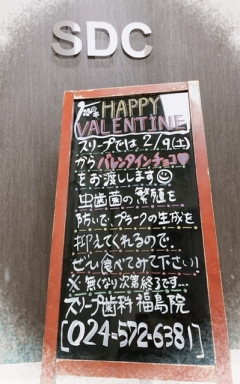 SDC
HAPPY
VALENTINE
スリープでは、2/9(土)
からバレンタインチョコ♥
をお渡しします☺
虫歯菌の繁殖を
防いで、プラークの生成を
抑えてくれるので、
ぜひ食べてみて下さい!
※無くなり次第終了です…
スリープ歯科 福島院
[024-572-6381]